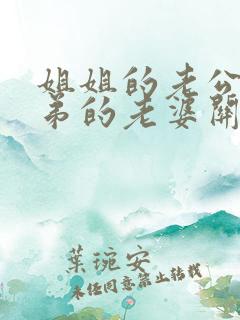 姐姐的老公
弟的老婆關
葉琬安
未经同意禁止转载